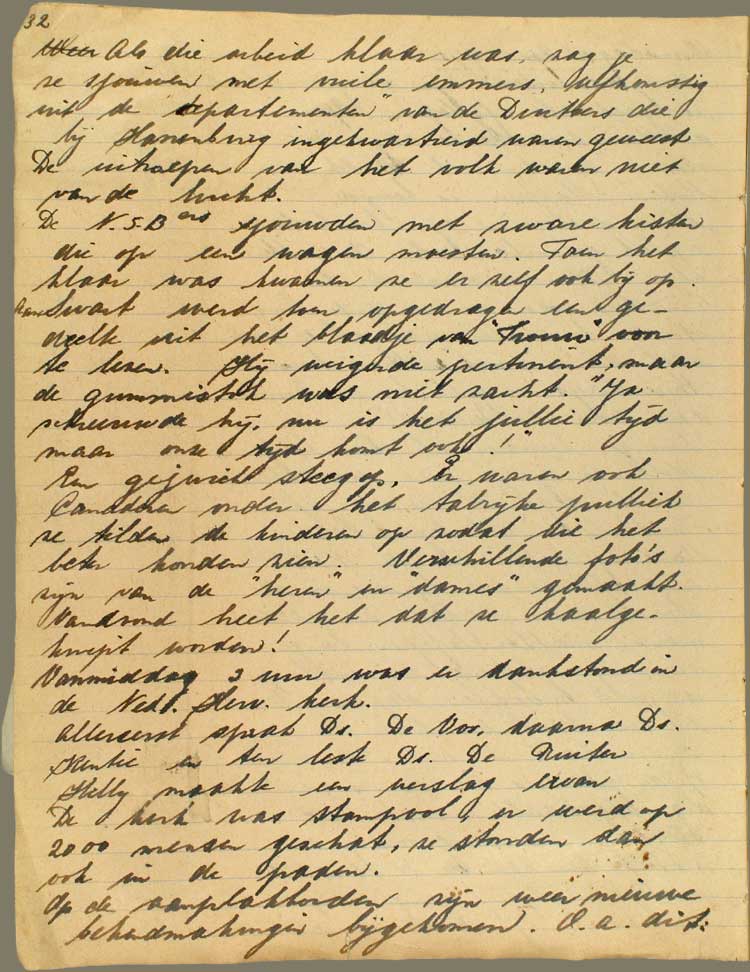 32
Als die arbeid klaar was, zag je
ze sjouwen met vuile emmers, afkomstig
uit de "departementen" van de Duitsers die
bij Hanenburg ingekwartierd waren geweest
De uitroepen van het volk waren niet
van de lucht.
De N.S.Bers sjouwden met zware kisten
die op een wagen moesten. Toen het
klaar was kwamen ze er zelf ook bij op.
Aan Swart werd toen opgedragen een ge-
deelte uit het blaadje van "Trouw" voor
te lezen. Hij weigerde pertinent, maar
de gummistok was niet zacht. "Ja
schreeuwde hij, nu is het jullie tijd
maar onze tijd komt ook!"
Een gejuich steeg op. Er waren ook
Canadezen onder het talrijke publiek
ze tilden de kinderen op zodat die het
beter konden zien. Verschillende foto's
zijn van de "heren" en "dames" gemaakt.
Vanavond heet het dat ze kaalge-
knipt worden!
Vanmiddag 3 uur was er dankstond in
de Ned. Herv. kerk.
Allereerst sprak Ds. De Vos, daarna Ds.
en ten leste Ds. De Ruiter
maakte een verslag ervan
De kerk was stampvol, er werd op
2000 mensen geschat, ze stonden dan
ook in de paden.
Op de aanplakborden zijn weer nieuwe
bekendmakingen bijgekomen. O.a. dit: